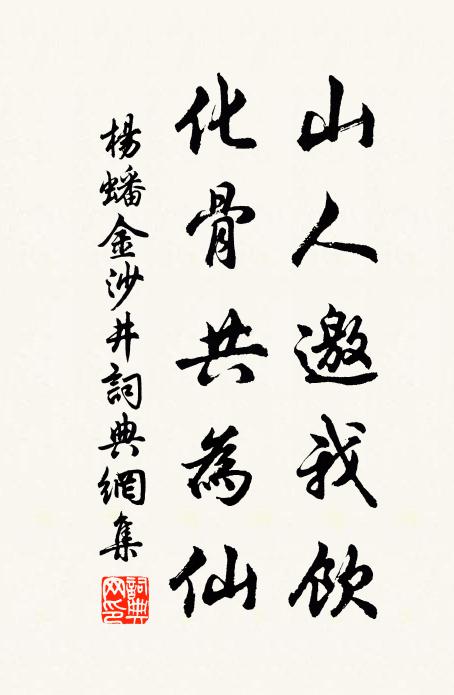 山人邀我飲
化骨共為仙
楊蟠金沙井詞典網集
詞典网印